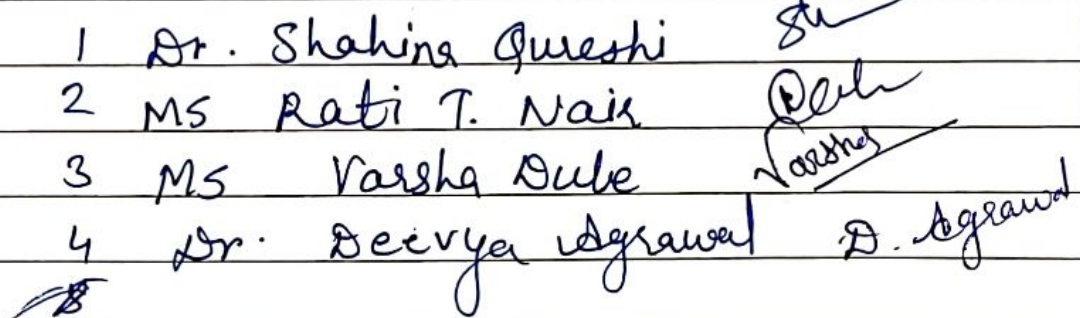 1 Dr. Shahina Qureshi
2 MS Rati T. Nair
3 MS Varsha Dube Varsha
4 Dr. Deevya Agrawal D. Agrawal